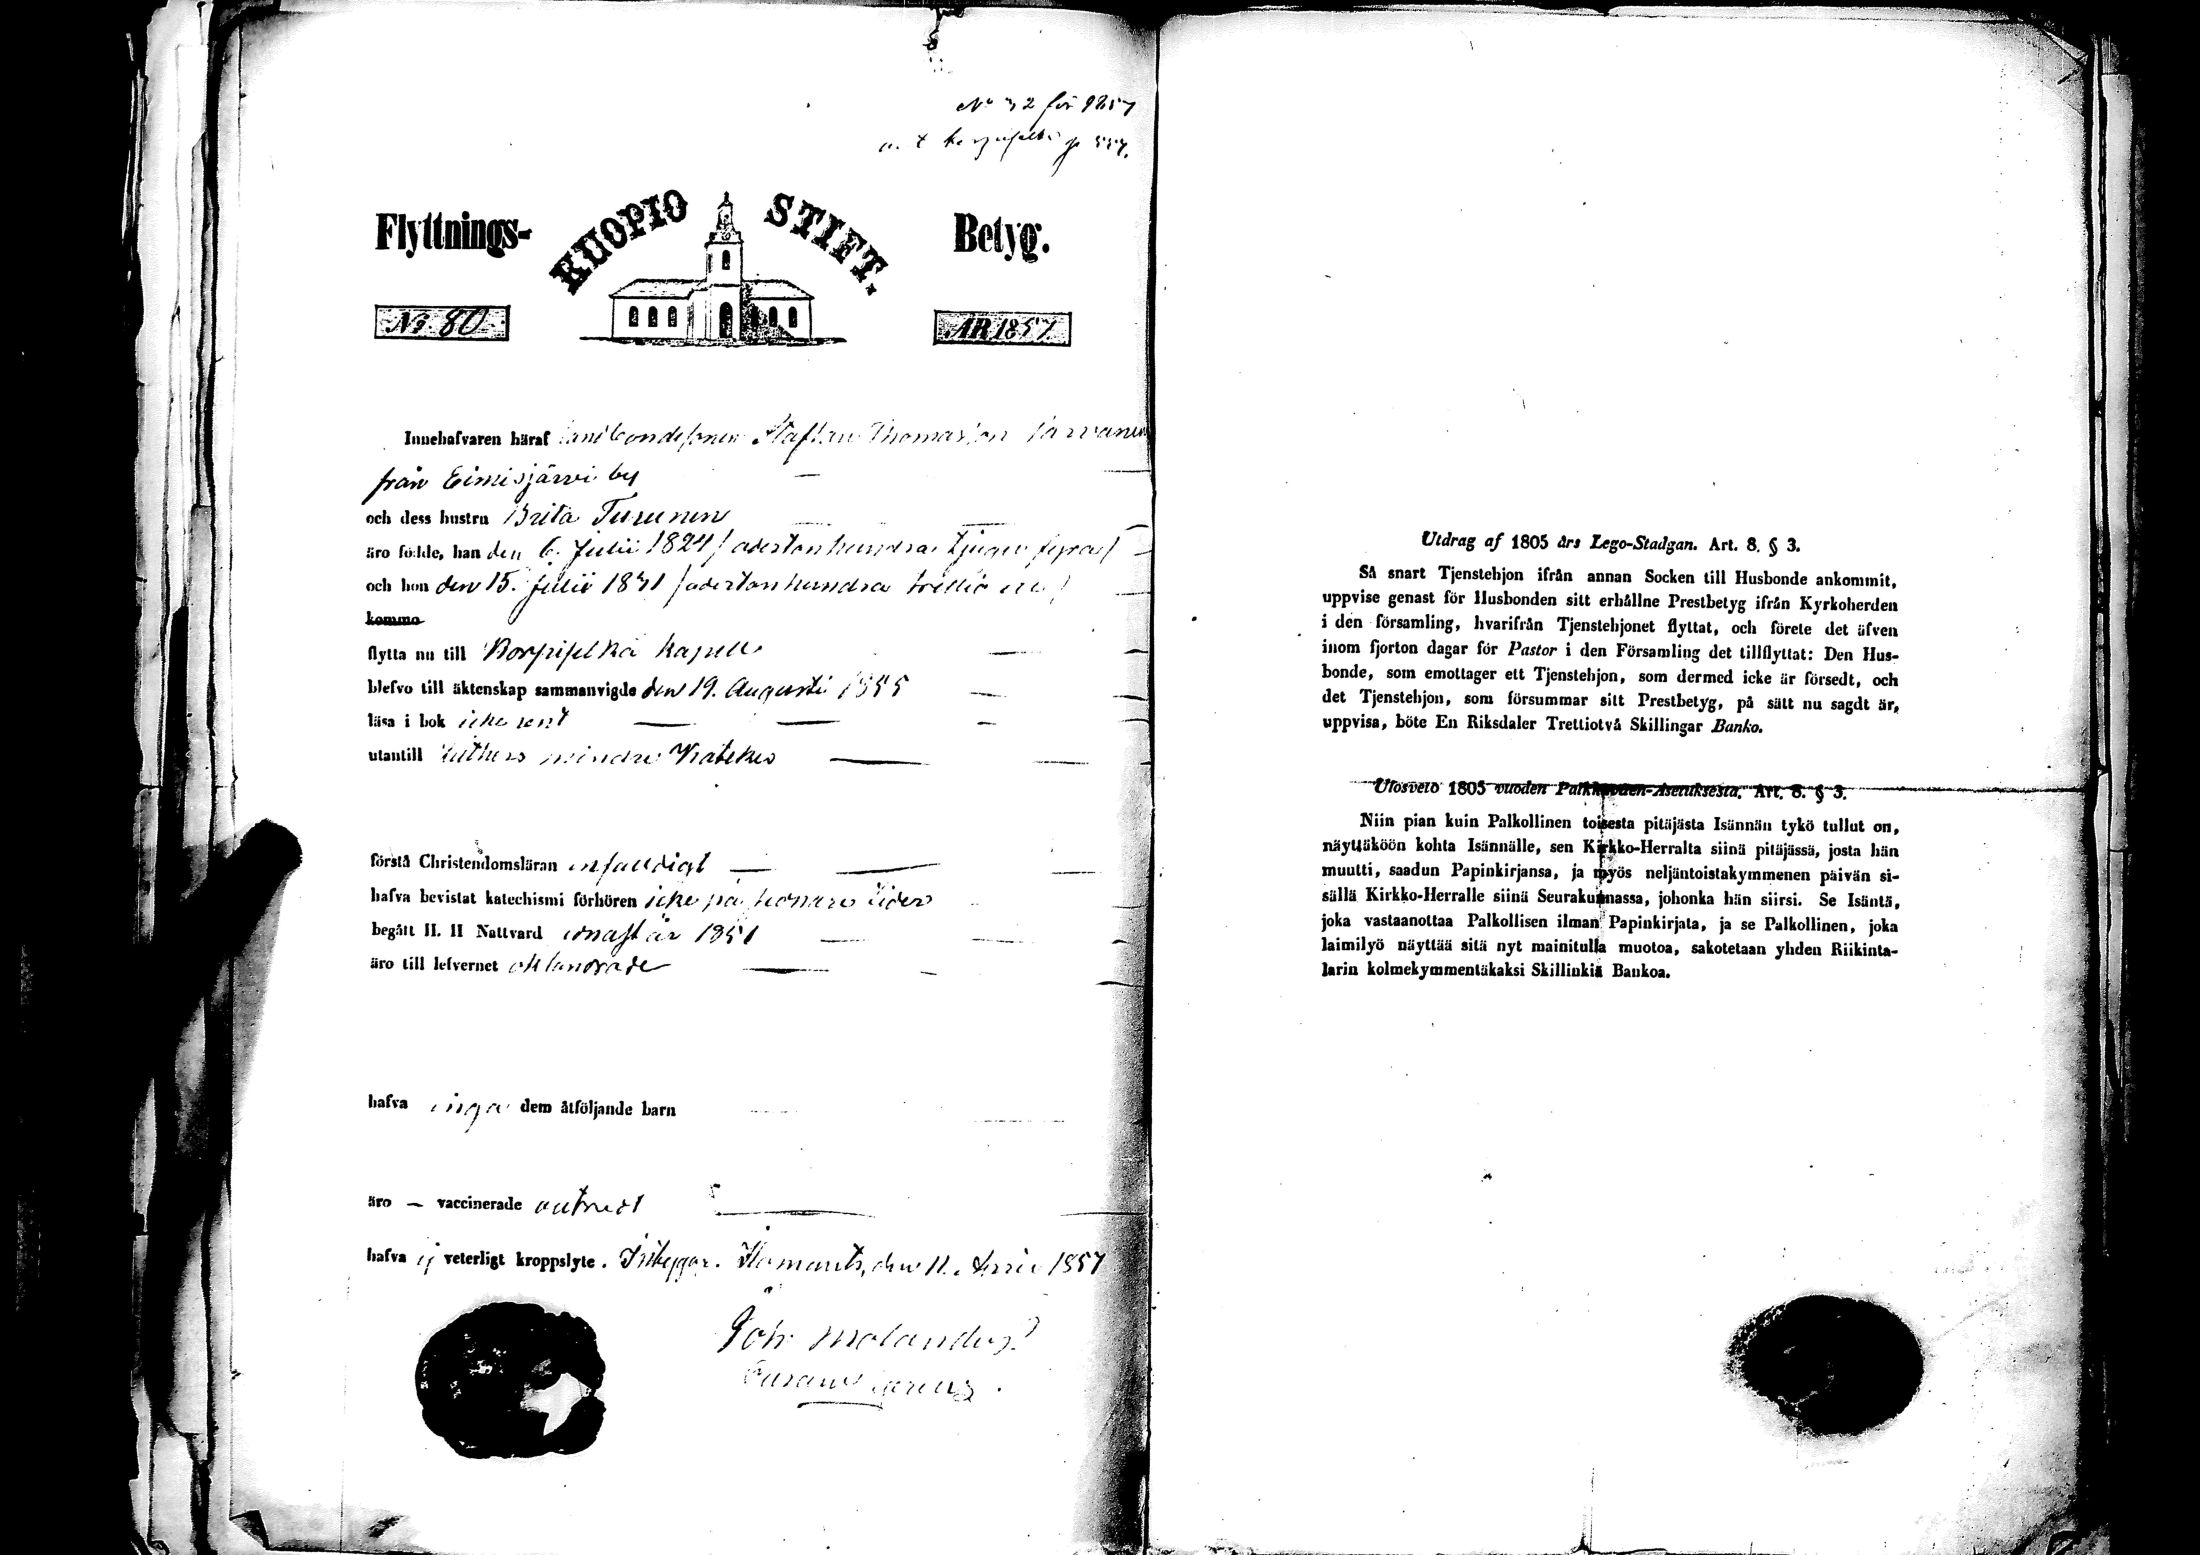 No 32 för 1857
Flyttnings-
KUOPIO STIFT.
Betyg.
No 80
ÅR 1857.
Innehafvaren häraf landbondesonen Staffan Thomasson
från Eimisjärvi by
och dess hustru Brita Turunen
äro födde, han den 6. Julii 1824 / adertonhundra tjugu fyra /
och hon den 15. Julii 1831 / adertonhundra trettio ett /
komma
flytta nu till Korpiselkä kapell
blefvo till äktenskap sammanvigde den 19. Augusti 1855
läsa i bok icke rent
utantill Luthers mindre Kateches
förstå Christendomsläran enfaldigt
hafva bevistat katechismi förhören icke på sednare tider
begått H. H Nattvard senast år 1851
äro till lefvernet oklandrade
hafva inga dem åtföljande barn
äro – vaccinerade
hafva ej veterligt kroppslyte. Ilomants, den 11. 1857
Joh Molander
Utdrag af 1805 års Lego-Stadgan. Art. 8. § 3.
Så snart Tjenstehjon ifrån annan Socken till Husbonde ankommit,
uppvise genast för Husbonden sitt erhållne Prestbetyg ifrån Kyrkoherden
i den församling, hvarifrån Tjenstehjonet flyttat, och förete det äfven
inom fjorton dagar för Pastor i den Församling det tillflyttat: Den Hus-
bonde, som emottager ett Tjenstehjon, som dermed icke är försedt, och
det Tjenstehjon, som försummar sitt Prestbetyg, på sätt nu sagdt är,
uppvisa, böte En Riksdaler Trettiotvå Skillingar Banko.
Ulosveto 1805 vuoden Palkkavuen-Asetuksesta. Art. 8. § 3.
Niin pian kuin Palkollinen toisesta pitäjästä Isännän tykö tullut on,
näyttäköön kohta Isännälle, sen Kirkko-Herralta siinä pitäjässä, josta hän
muutti, saadun Papinkirjansa, ja myös neljäntoistakymmenen päivän si-
sällä Kirkko-Herralle siinä Seurakunnassa, johonka hän siirsi. Se Isäntä,
joka vastaanottaa Palkollisen ilman Papinkirjata, ja se Palkollinen, joka
laimilyö näyttää sitä nyt mainitulla muotoa, sakotetaan yhden Riikinta-
larin kolmekymmentäkaksi Skillinkiä Bankoa.